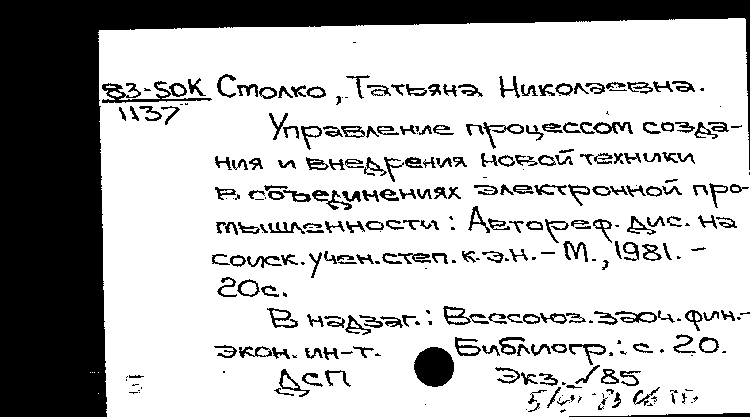 83-50К Столко, Татьяна Николаевна.
1137
Управление процессом созда-
ния и внедрения новой техники
в объединениях электронной про-
мышленности: Автореф. дис. на
соиск. учен. степ. к.э.н. - М., 1981. -
20с.
В надзаг.: Всесоюз. заоч. фин.-
экон. ин-т. Библиогр.: с. 20.
ДСП Экз. №85